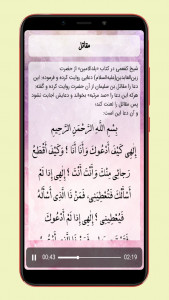 مقاتل
شیخ کفعمی در کتاب «بلدالامین» از حضرت
زین‌العابدین(علیه‌السلام) دعایی روایت کرده و فرموده: این
دعا را مقاتل بن سلیمان از آن حضرت روایت کرده و گفته
هرکه این دعا را «صد مرتبه» بخواند و دعایش اجابت نشود
پس مقاتل را لعنت کند؛
و آن دعا این است:
بِسْمِ اللَّهِ الرَّحْمنِ الرَّحِیمِ
إِلٰهِى كَيْفَ أَدْعُوكَ وَأَنَا أَنَا ؟ وَكَيْفَ أَقْطَعُ
رَجائِى مِنْكَ وَأَنْتَ أَنْتَ ؟ إِلٰهِى إِذَا لَمْ
أَسْأَلْكَ فَتُعْطِيَنِى، فَمَنْ ذَا الَّذِى أَسْأَلُهُ
فَيُعْطِيَنِى ؟ إِلٰهِى إِذَا لَمْ أَدْعُوكَ
00:43
02:19